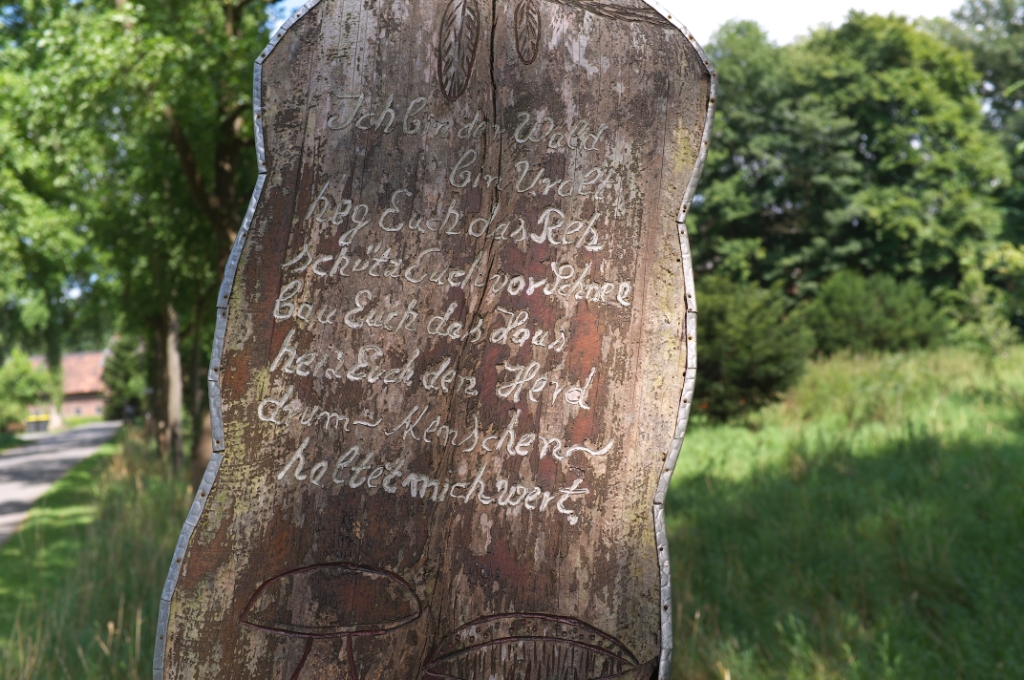 Ich bin der Wald
bin Uralt,
heg Euch das Reh
schütz Euch vor Schnee
bau Euch das Haus
heiz Euch den Herd
drum~Menschen~
haltet mich wert.